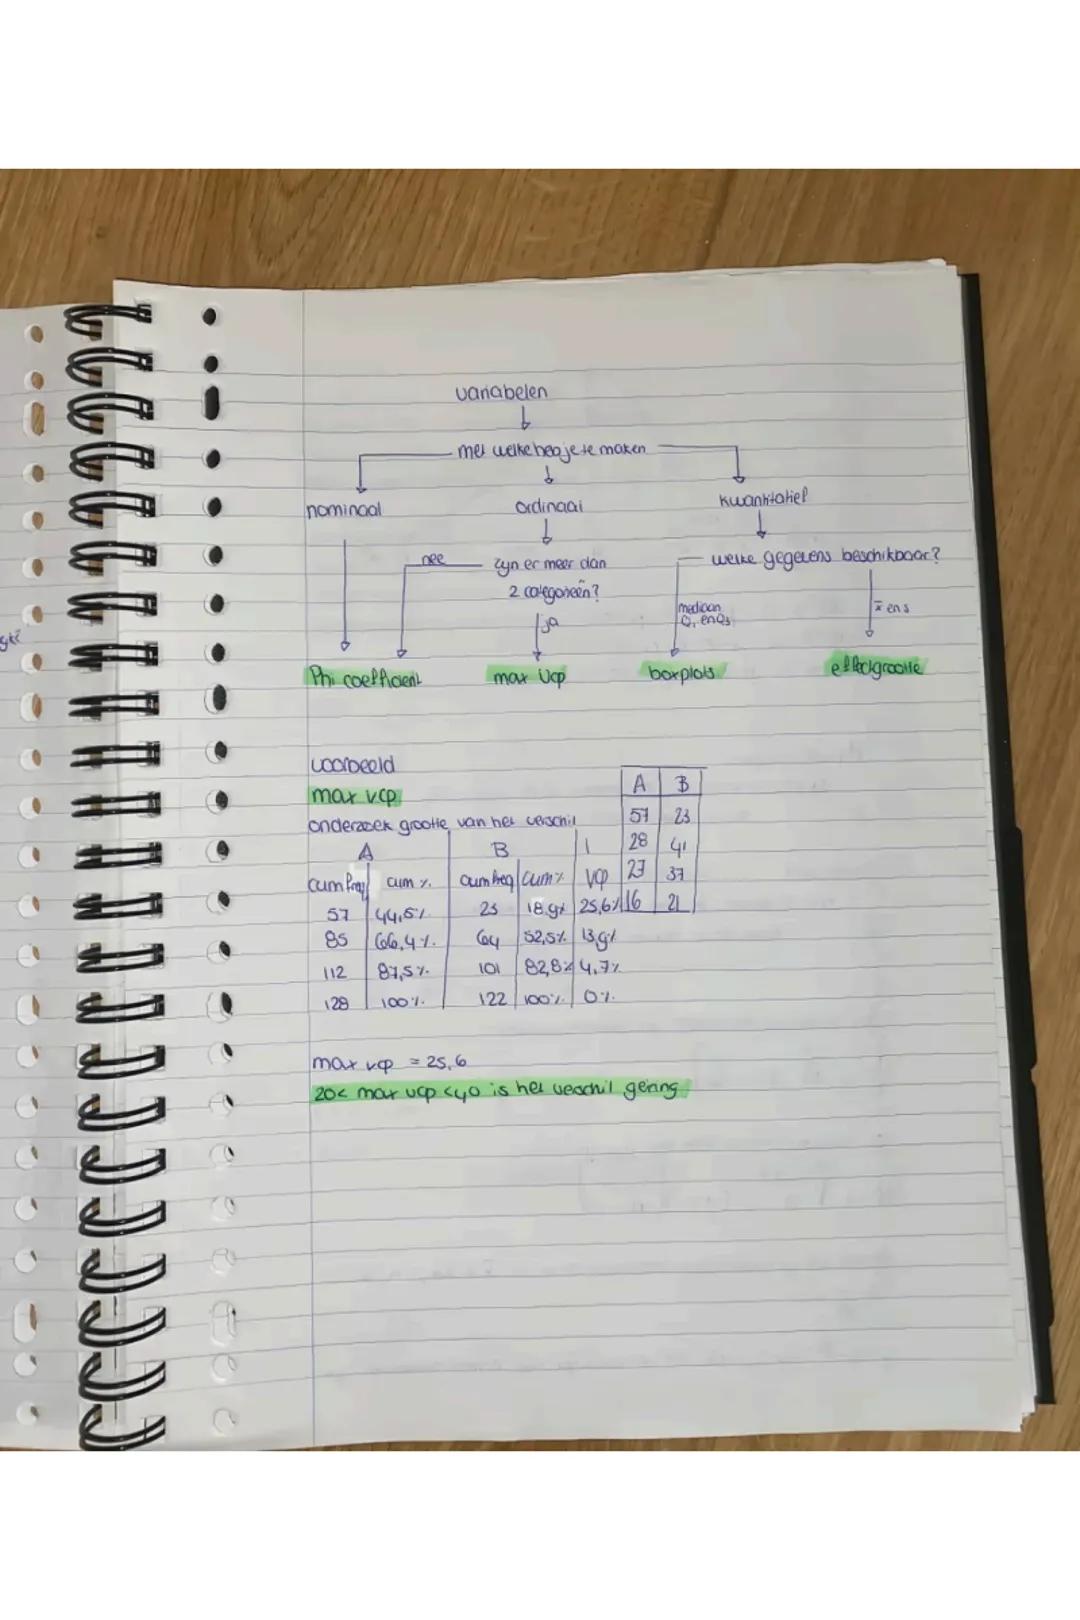 variabelen
met welke heb je te maken
nominaal ordinaal kwantitatief
nee zijn er meer dan welke gegevens beschikbaar?
2 categorieën?
ja mediaan x̄ en s
Q₁ en Q₃
Phi coefficient max Vcp boxplots effectgrootte
voorbeeld
max vcp
onderzoek grootte van het verschil
A B
57 23
28 41
27 37
16 21
A B
cum freq cum % cum freq cum % vcp
57 44,5% 23 18,9% 25,6%
85 66,4% 64 52,5% 13,9%
112 87,5% 101 82,8% 4,7%
128 100% 122 100% 0%
max vcp = 25,6
20< max vcp <40 is het verschil gering